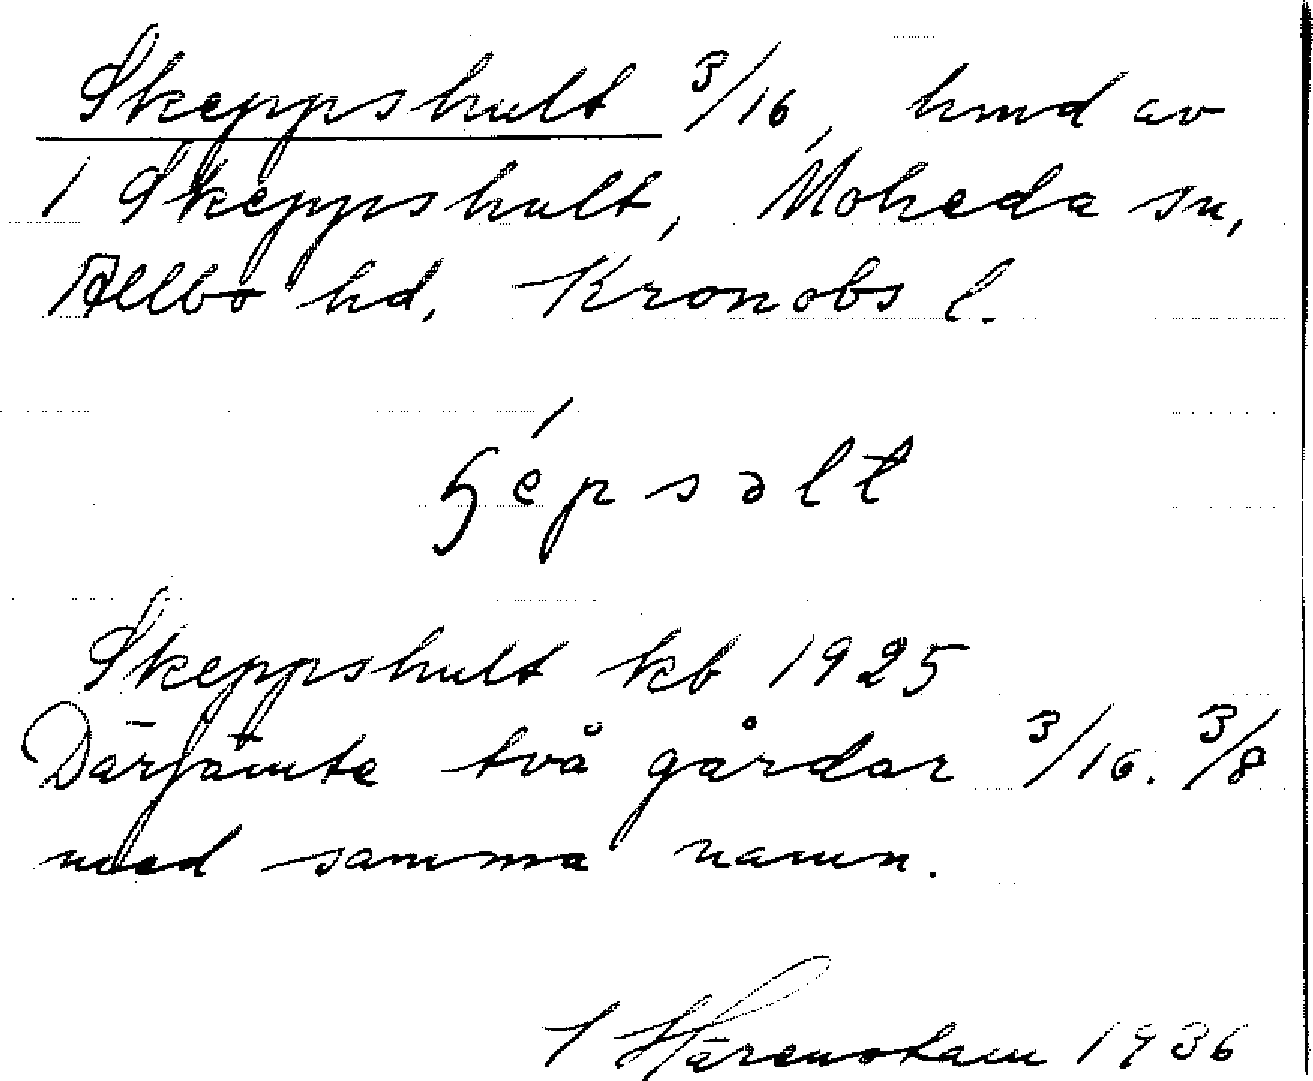 Skeppshult 3/16, hmd av
1 Skeppshult, Moheda sn,
Allbo hd, Kronobs l.
ɧépsəlt
Skeppshult kb 1925
Därjämte två gårdar 3/16. 3/8
med samma namn.
Härenstam 1936